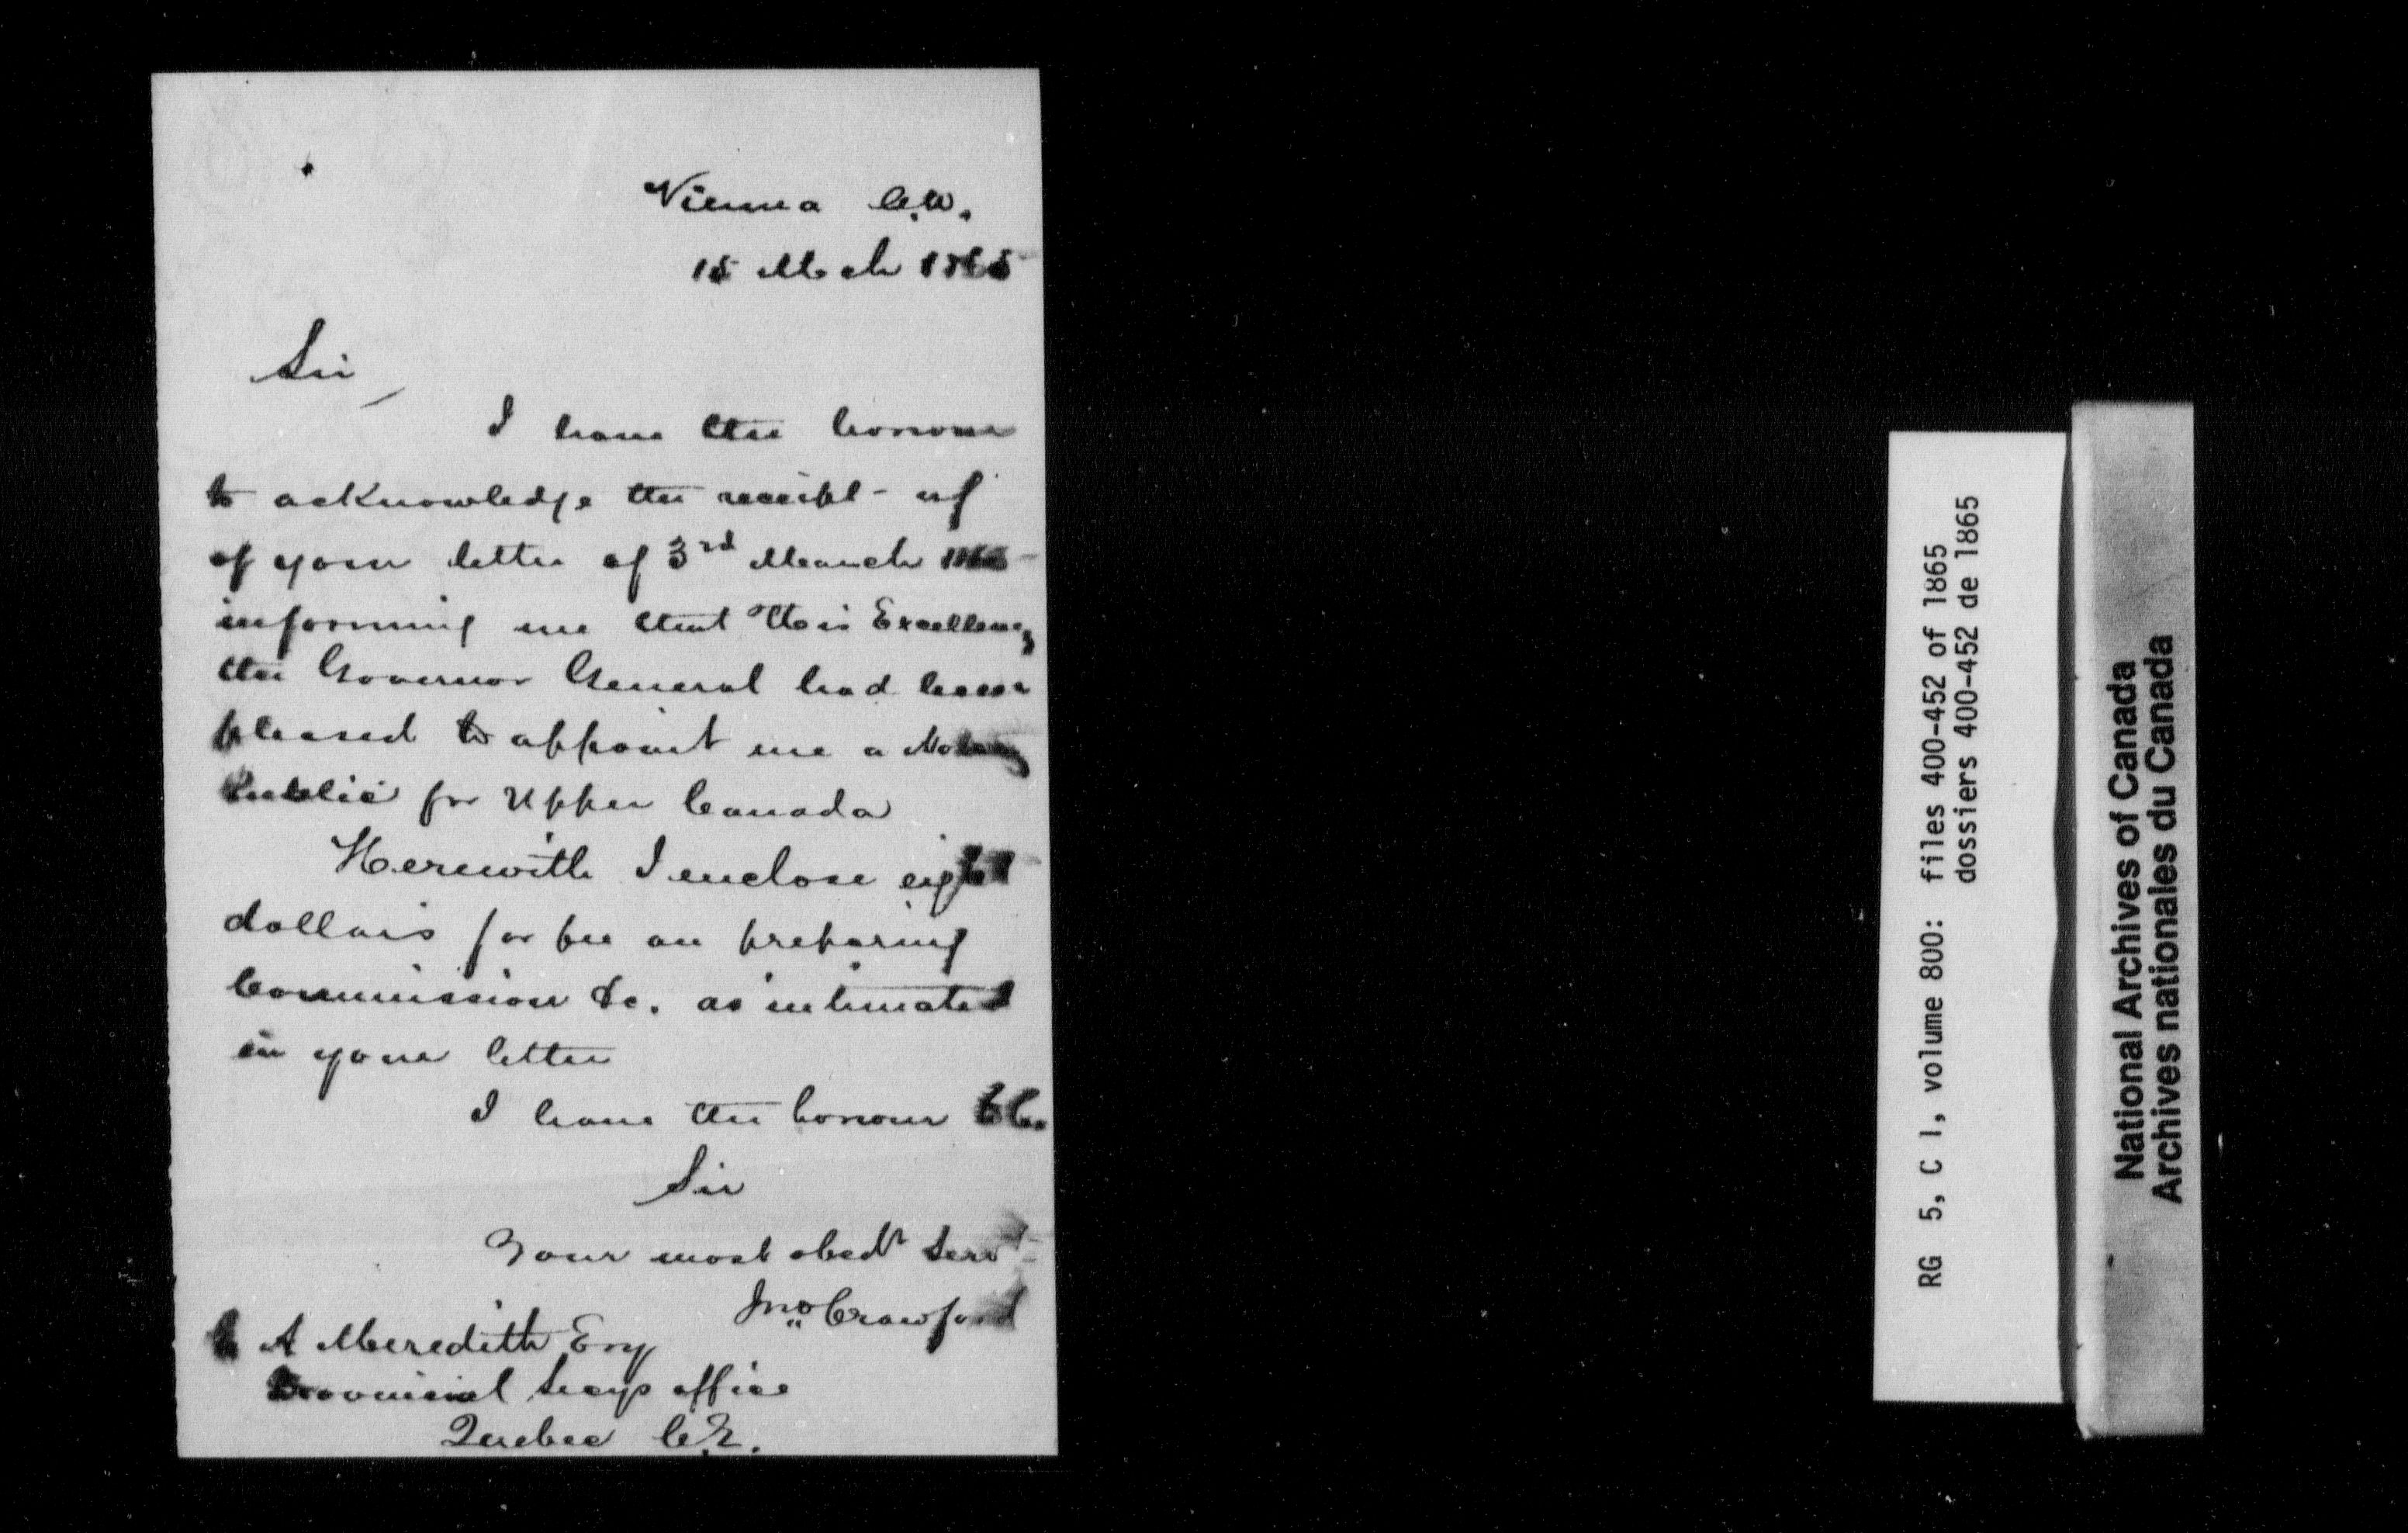 Vienna C.W.
15 Mch 1865
Sir
I have the honour
to acknowledge the receipt - of
of your letter of 3rd March 1865
informing me that His Excellency
the Governor General had been
pleased to appoint me a Notary
Public for Upper Canada
Herewith I enclose eight
dollars for fee on preparing
Commission &c. as intimated
in your letter
I have the honour
Sir
Your most obedt Servt
Jno Crawford
A Meredith Esq
Provincial Secys office
Quebec C.E.
RG 5, C 1, volume 800: files 400-452 of 1865
dossiers 400-452 de 1865
National Archives of Canada
Archives nationales du Canada